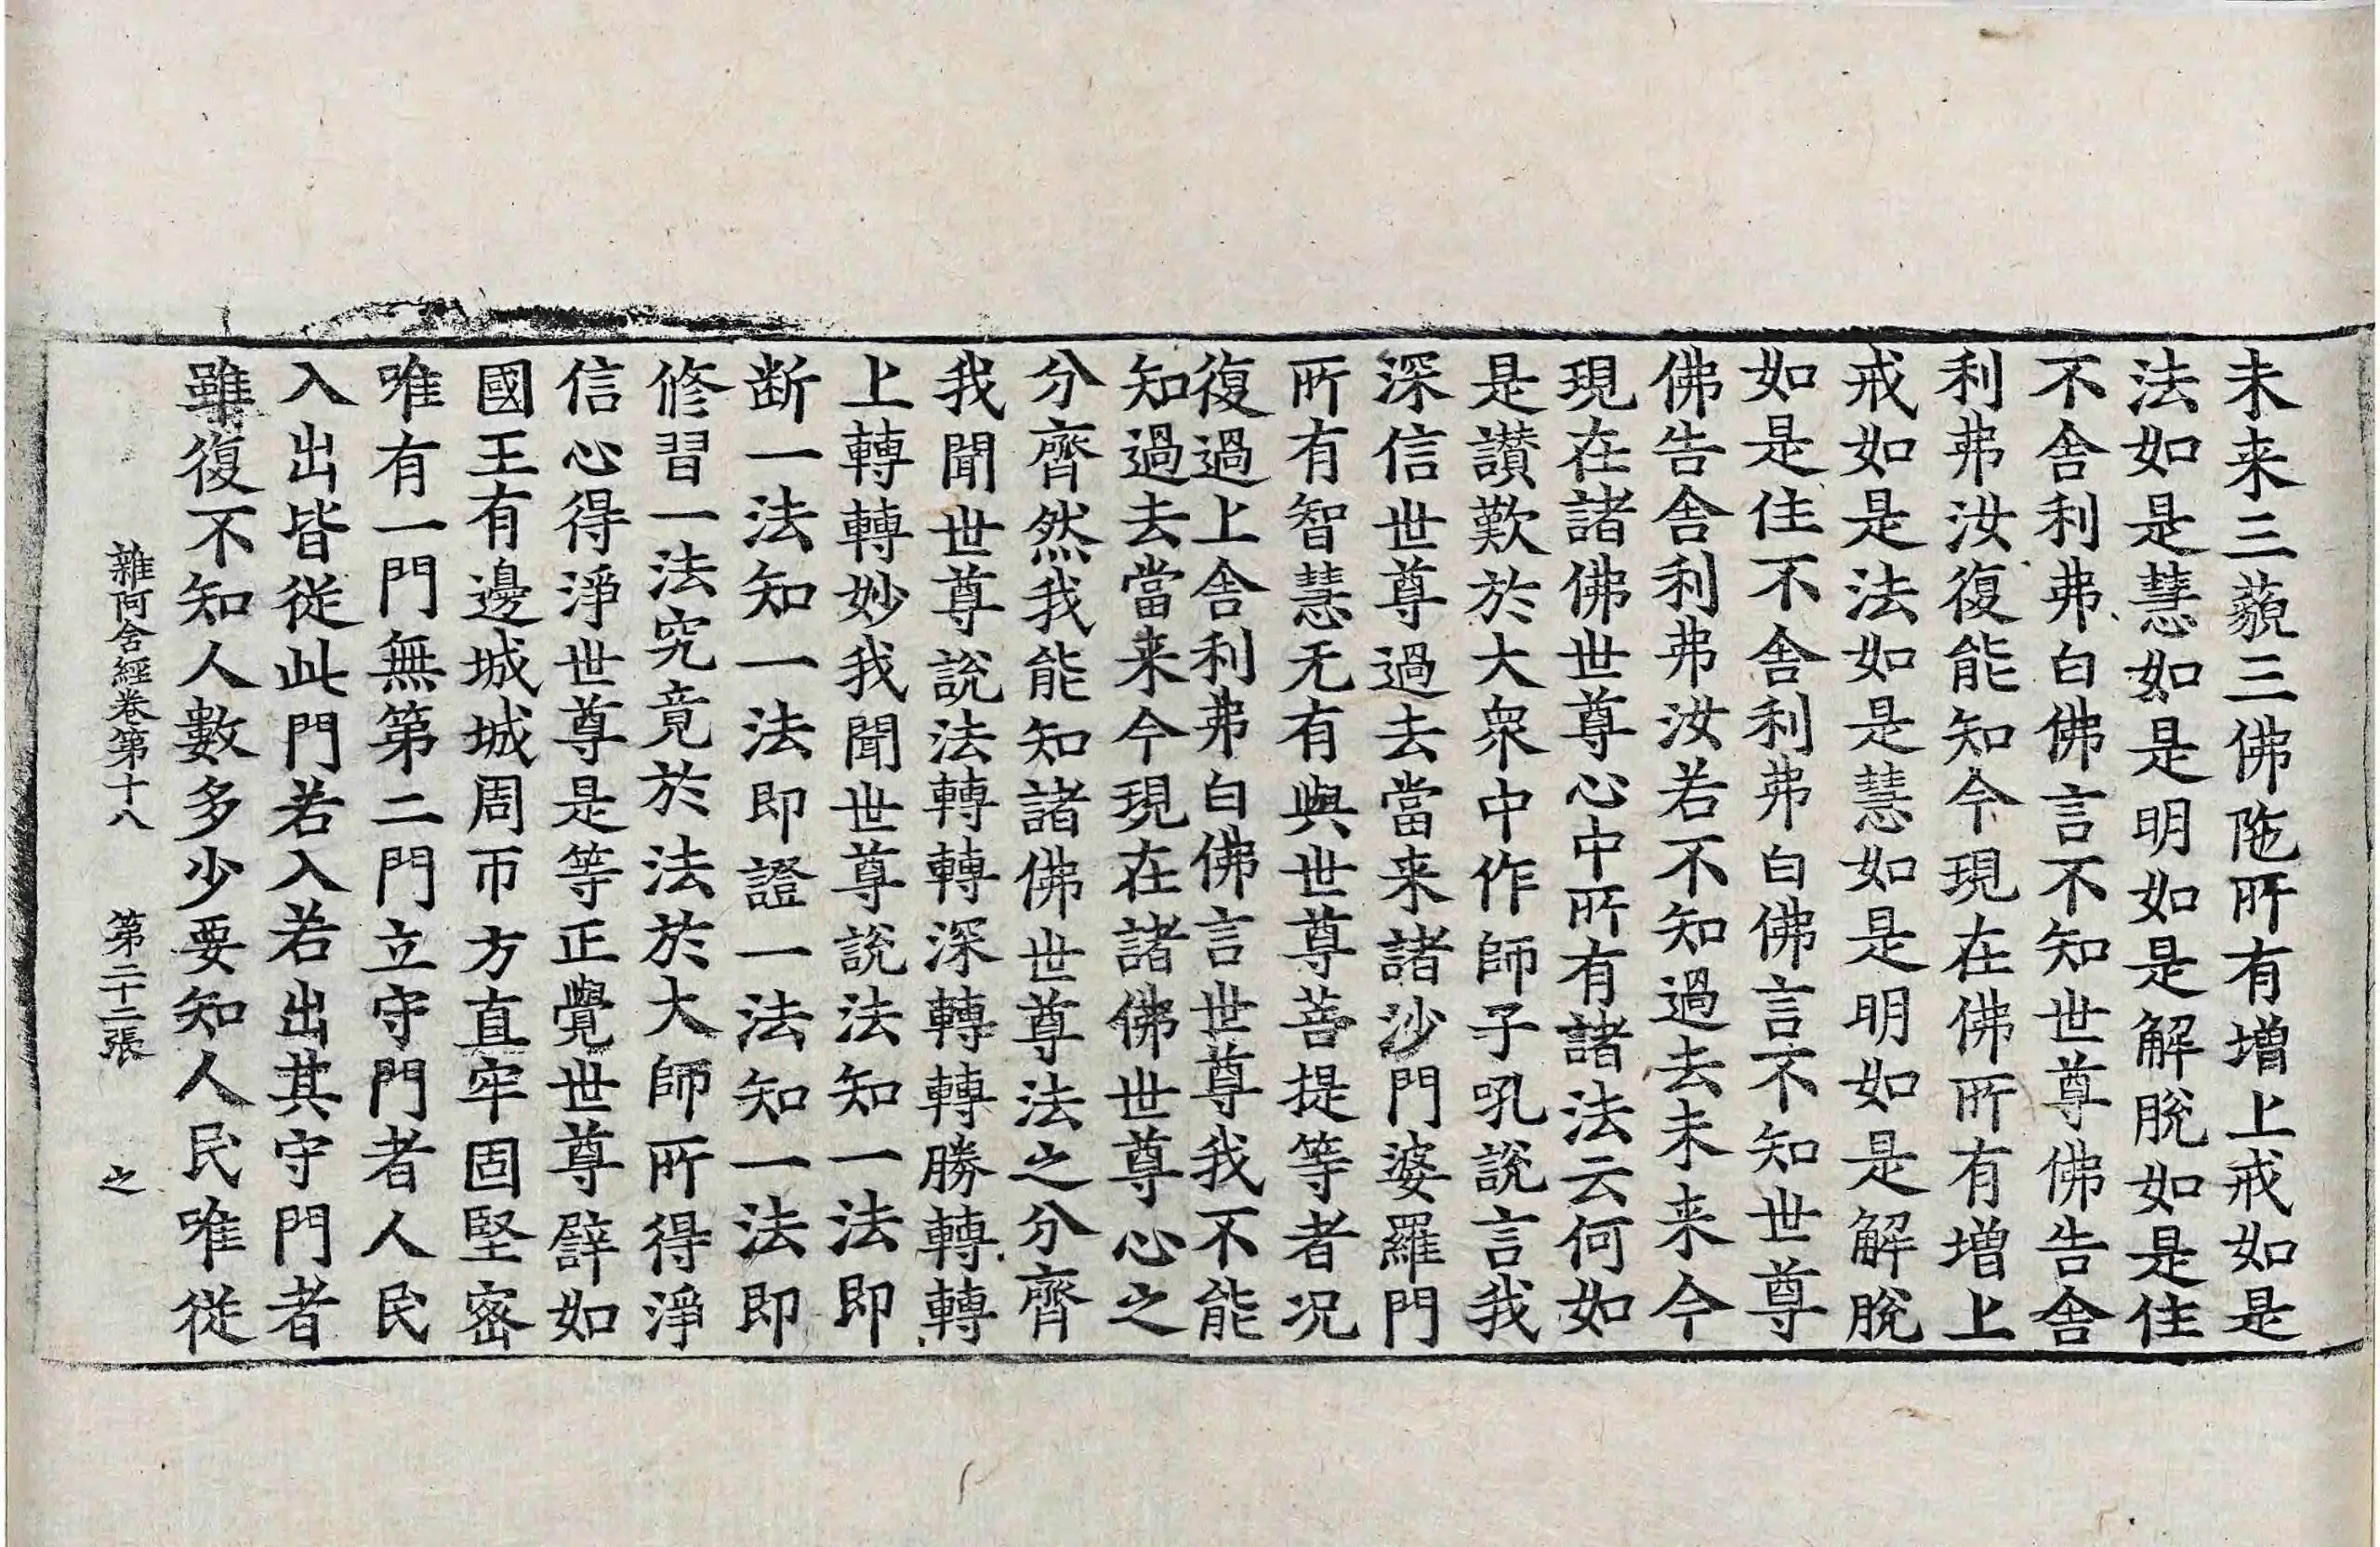 未来三藐三佛陁所有增上戒如是
法如是慧如是明如是解脫如是住
不舍利弗白佛言不知世尊佛告舍
利弗汝復能知今現在佛所有增上
戒如是法如是慧如是明如是解脫
如是住不舍利弗白佛言不知世尊
佛告舍利弗汝若不知過去未来今
現在諸佛世尊心中所有諸法云何如
是讃歎於大衆中作師子吼說言我
深信世尊過去當来諸沙門婆羅門
所有智慧无有與世尊菩提等者况
復過上舍利弗白佛言世尊我不能
知過去當来今現在諸佛世尊心之
分齊然我能知諸佛世尊法之分齊
我聞世尊說法轉轉深轉轉勝轉轉
上轉轉妙我聞世尊說法知一法即
断一法知一法即證一法知一法即
修習一法究竟於法於大師所得淨
信心得淨世尊是等正覺世尊辟如
國王有邊城城周帀方直牢固堅密
唯有一門無第二門立守門者人民
入出皆從此門若入若出其守門者
雖復不知人數多少要知人民唯從
雜阿含經卷第十八　第二十二張　之